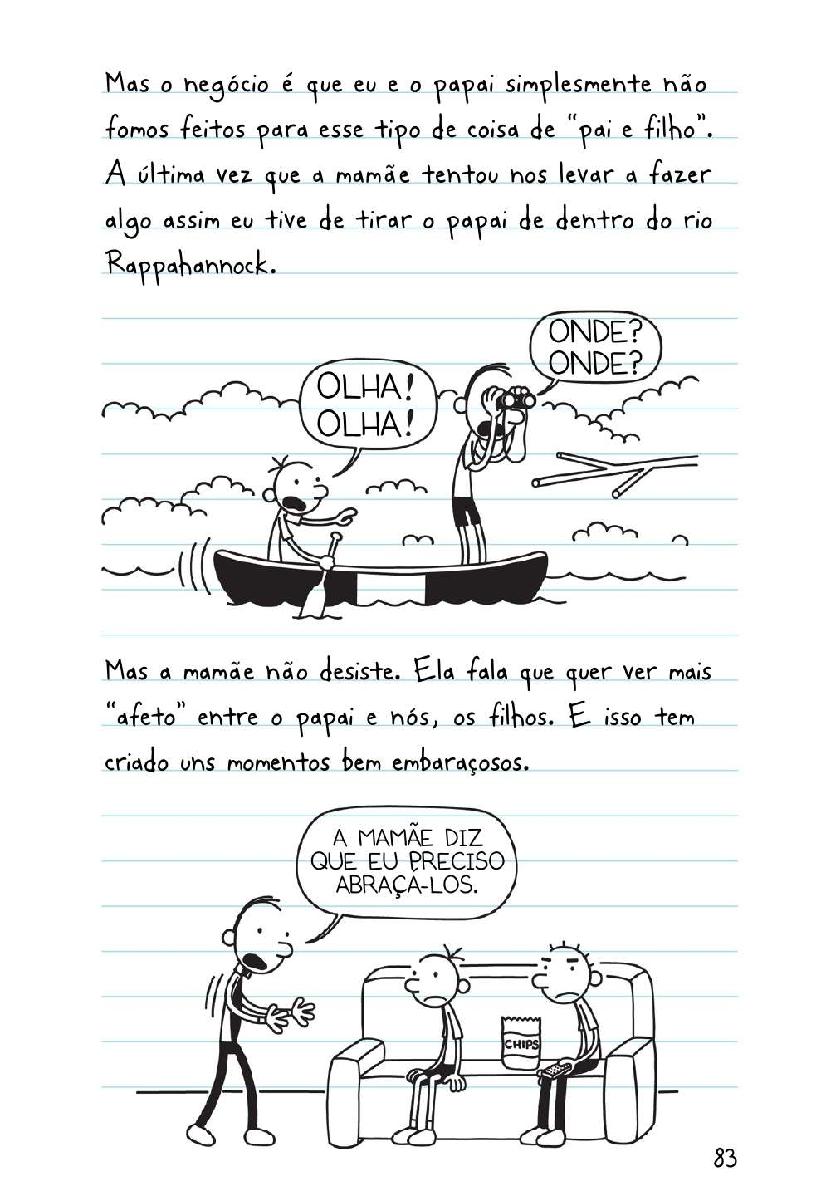 Mas o negócio é que eu e o papai simplesmente não
fomos feitos para esse tipo de coisa de “pai e filho”.
A última vez que a mamãe tentou nos levar a fazer
algo assim eu tive de tirar o papai de dentro do rio
Rappahannock.
OLHA!
OLHA!
ONDE?
ONDE?
Mas a mamãe não desiste. Ela fala que quer ver mais
“afeto” entre o papai e nós, os filhos. E isso tem
criado uns momentos bem embaraçosos.
A MAMÃE DIZ
QUE EU PRECISO
ABRAÇÁ-LOS.
CHIPS
83